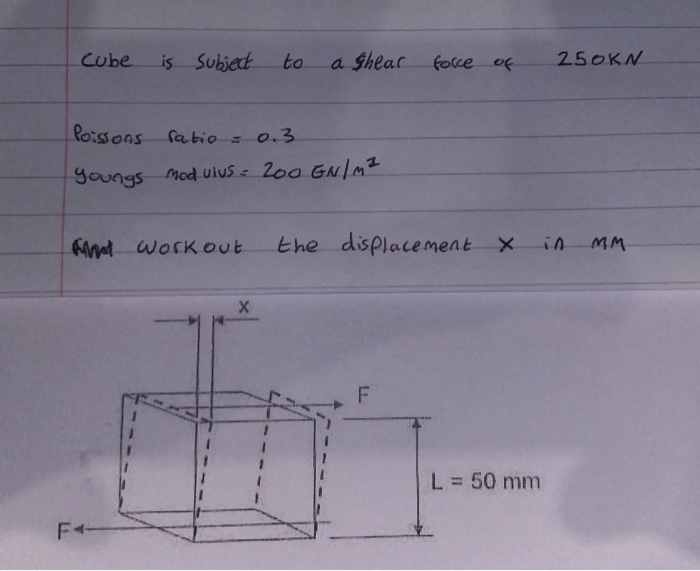 Cube is Subject to a Shear force of 250KN
Poissons ratio = 0.3
youngs modulus = 200 GN/m²
workout the displacement x in mm
x
F
L = 50 mm
F